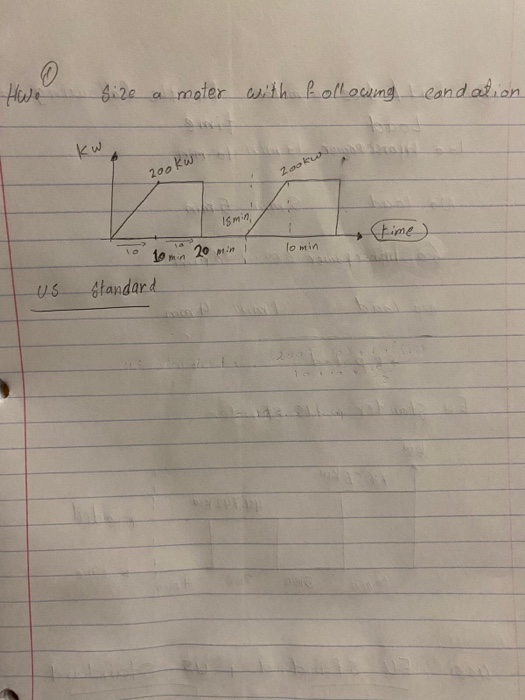 HW. 1 Size a moter with following condation
KW
200 KW
200KW
15min
10 10 min 10 20 min 10 min
time
US Standard